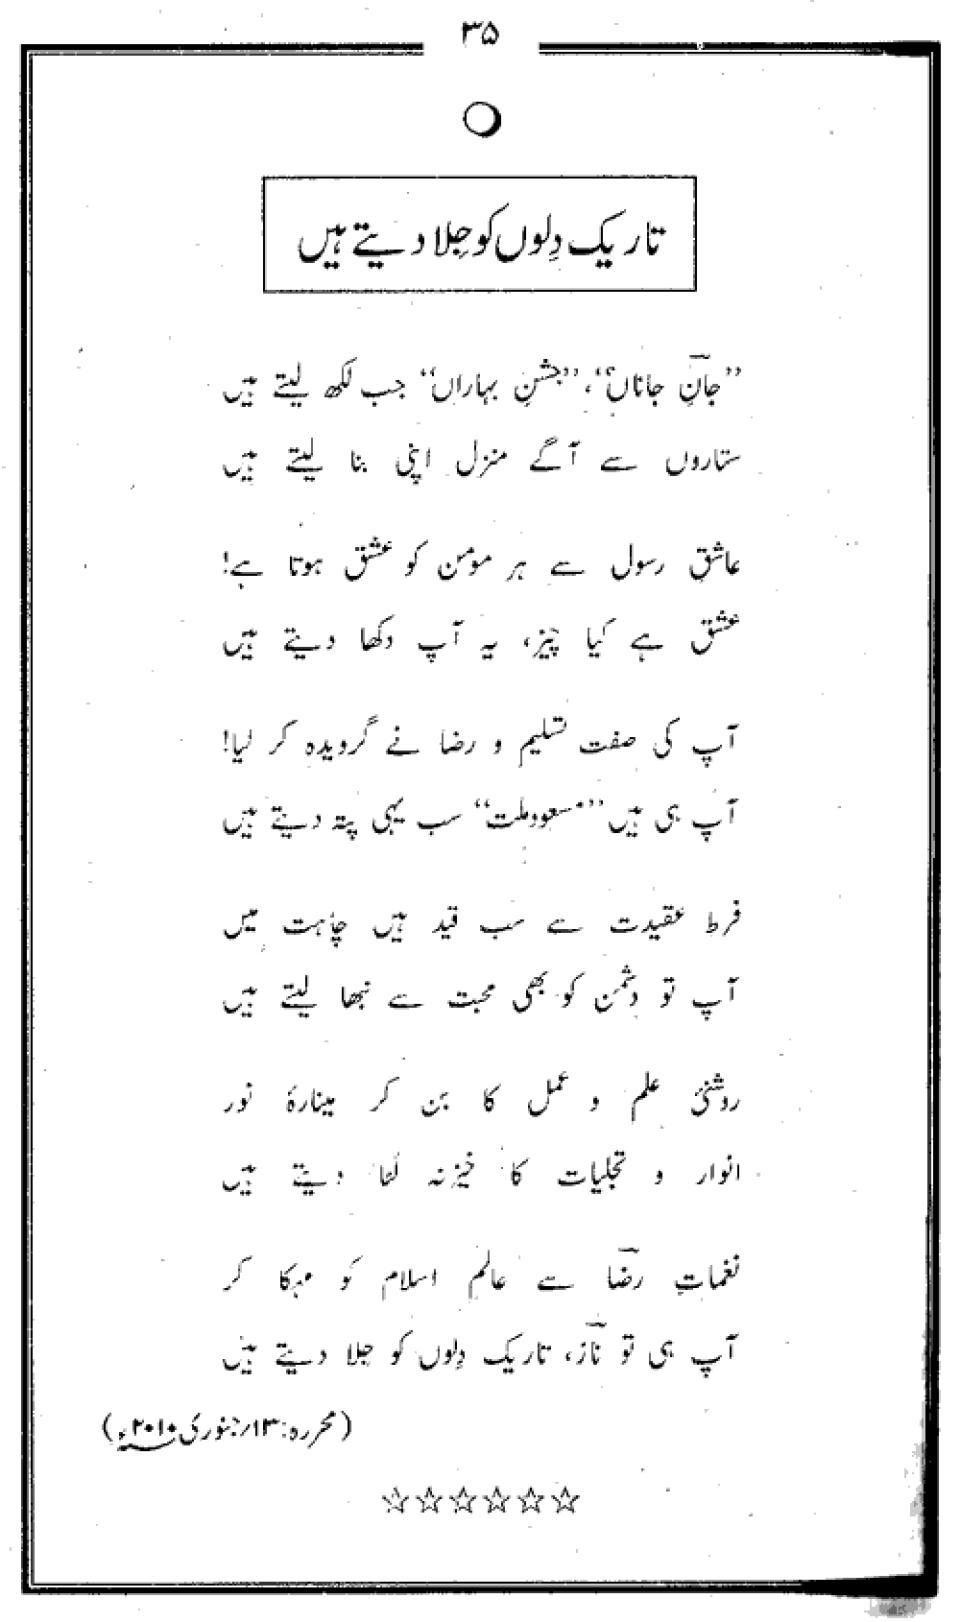 ۳۵
تاریک دِلوں کو جِلا دیتے ہیں
’’جانِ جاناں‘‘، ’’جشنِ بہاراں‘‘ جب لکھ لیتے ہیں
ستاروں سے آگے منزل اپنی بنا لیتے ہیں
عاشقِ رسول سے ہر مومن کو عشق ہوتا ہے!
عشق ہے کیا چیز، یہ آپ دکھا دیتے ہیں
آپ کی صفت تسلیم و رضا نے گرویدہ کر لیا!
آپ ہی ہیں ’’مسعودِ ملت‘‘ سب یہی پتہ دیتے ہیں
فرط عقیدت سے سب قید ہیں چاہت میں
آپ تو دشمن کو بھی محبت سے نبھا لیتے ہیں
روشنیٔ علم و عمل کا بن کر مینارۂ نور
انوار و تجلیات کا خیزنہ لُٹا دیتے ہیں
نغماتِ رضؔا سے عالمِ اسلام کو مہکا کر
آپ ہی تو نازؔ، تاریک دِلوں کو جِلا دیتے ہیں
(محررہ: ۱۳؍جنوری ۲۰۱۰ء)
☆☆☆☆☆☆